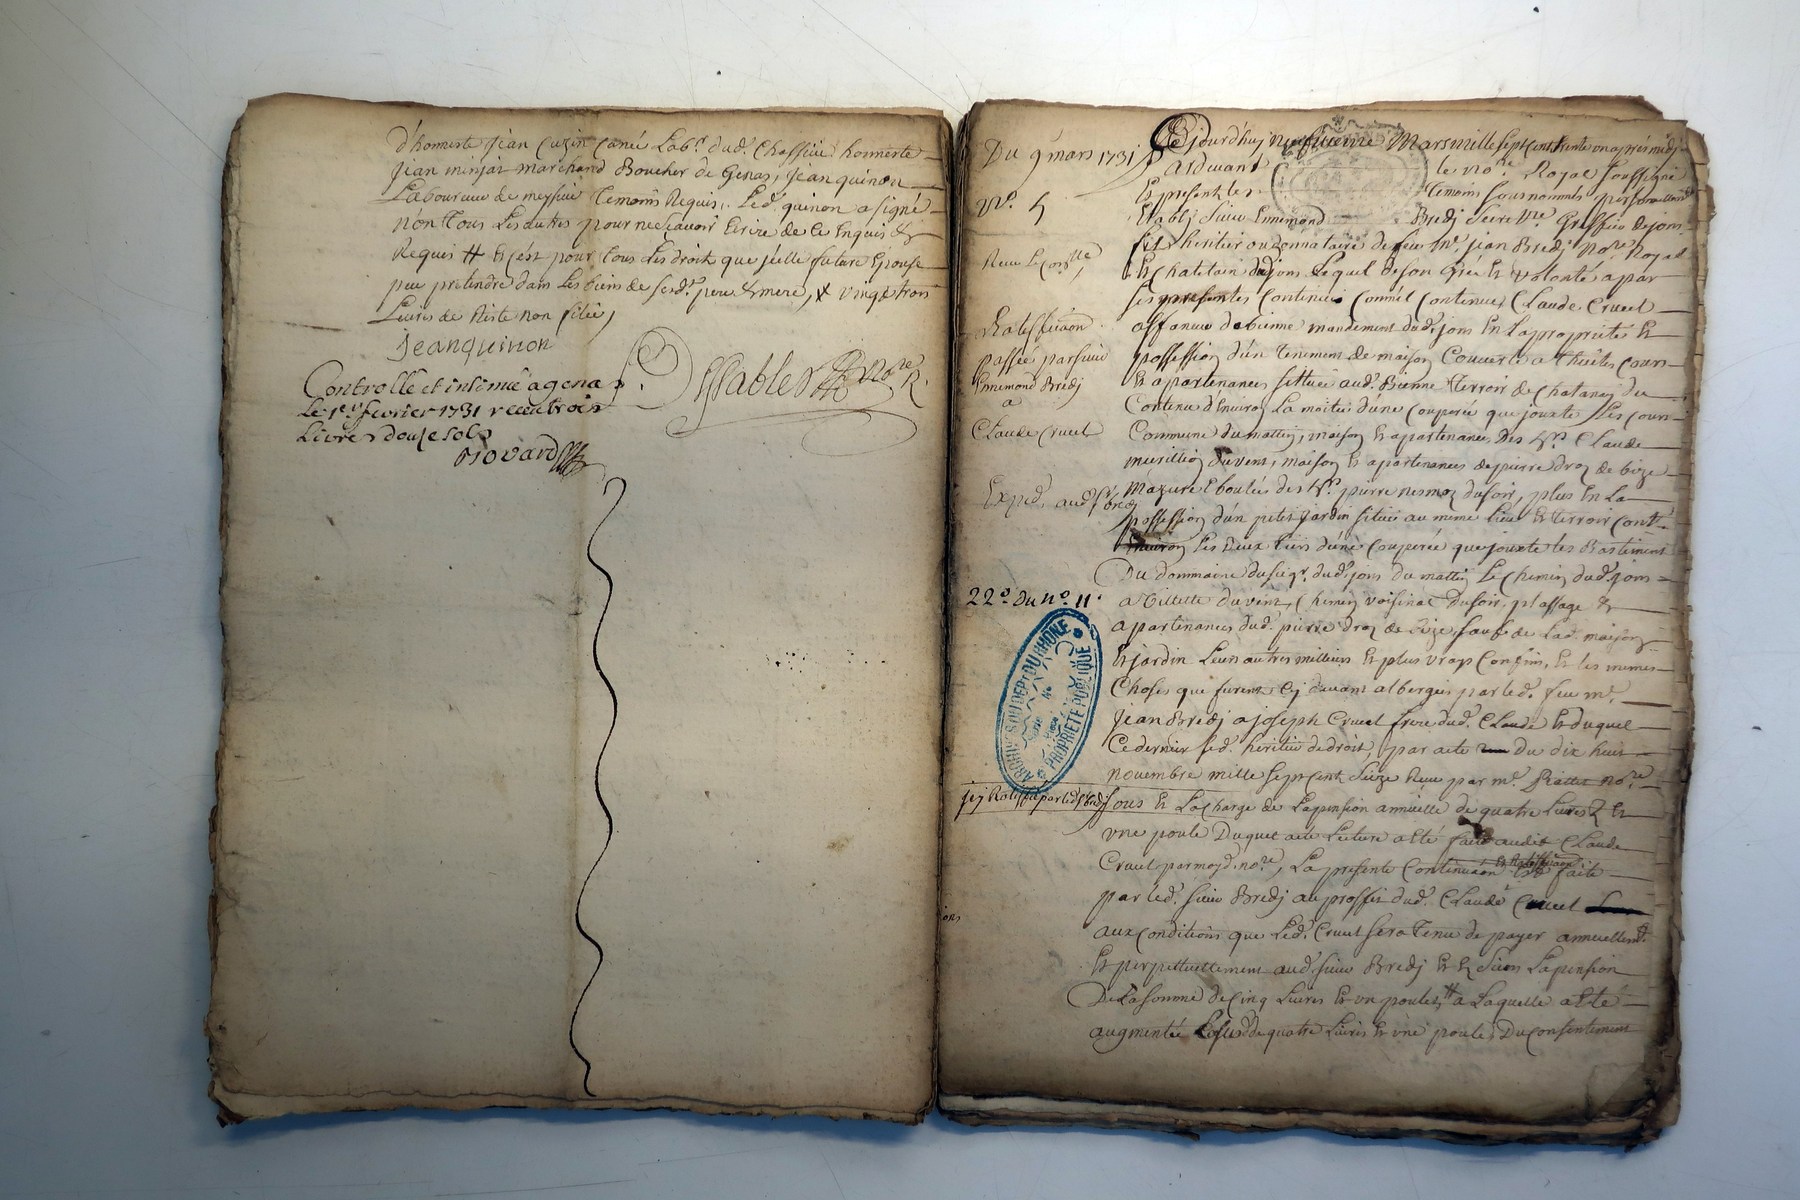 d'honneste jean Cuzin Cané Labr. dud. Chassieu honneste
jean minjat marchand Boucher de Genas, jean quinon
Laboureur de meyssiu Temoins Requis, Led. quinon a signé
non Tous Les autres pour ne sçavoir Ecrire de ce Enquis &
Requis # Et c'est pour Tous Les droit que jcelle future Epouse
peu pretendre dans Les biens de sesd. pere & mere, # vingt trois
Livres de Riste non filée,
jean quinon
Controllé et insinué a genas
Le 1er fevrier 1731 receu trois
Livres douze sols
Du 9 mars 1731
No. 5
Ratesficaon
passée par sieur
Ennemond Bredj
a
Claude Cruel
Exped.
22o. du no. 11.
ARCHIVES DU DEPT DU RHONE
PROPRIETE PUBLIQUE
Cejourd'huj neufvieme Mars mille sept cent trente un apres midj
Pardevant le nore. Royal soussigné
Et present les Temoins sousnommés
Etablj sieur Ennemond Bredj Greffier de jons
fils heritier ou donnataire de feu me. jean Bredj Nore. Royal
Et Chatelain dud. jons Lequel de son Gré Et volonté a par
ses presentes Continué Comm'il Continue, Claude Cruel
affaneur de bienne mandement dud. jons En La proprieté Et
possession d'un Tenement de maison Couverte a Thuiles Cours
Et apartenances sittuée aud. Bienne Terroir de Chatanej du
Contenu d'Environ La moitié d'une Couperée que jouxte Les Cours
Commune du mattin, maison Et apartenances des hrs. Claude
du vent, maison Et apartenances de pierre droz de bize
mazure Eboulée des hrs. pierre nesmoz du soir, plus En La
possession d'un petit jardin situé au meme lieu Et Terroir Contt.
Environ Les deux tiers d'une Couperée que jouxte les Bastiment
Du dommaine du seigr. dud. jons du mattin Le Chemin dud. jons
a Villette du vent, Chemin voisinal du soir, plassage &
apartenances dud. pierre droz de bize sauf de Lad. maison
Et jardin Leurs autres meilleurs Et plus vrays Confins, Et les memes
Choses que furent Cj devant albergées par led. feu me.
jean Bredj a joseph Cruel frere dud. Claude Et duquel
Ce dernier sed. heritier de droit, par acte du dix huit
novembre mille sept cent seize Reçu par me. nore.
sous Et La charge de La pension annuelle de quatre Livres Et
une poule Duquel acte Lecture a Eté faite audit Claude
Cruel par moyd. nore, La presente Continuaon Et Ratefficaon faite
par led. sieur Bredj au proffit dud. Claude Cruel
aux Conditions que Led. Cruel sera Tenu de payer annuellemt.
Et perpettuellement aud. sieur Bredj Et Es siens La pension
De La somme de cinq Livres Et un poulet, # a Laquelle a Eté
augmentée de quatre Livres Et une poule, Du Consentement